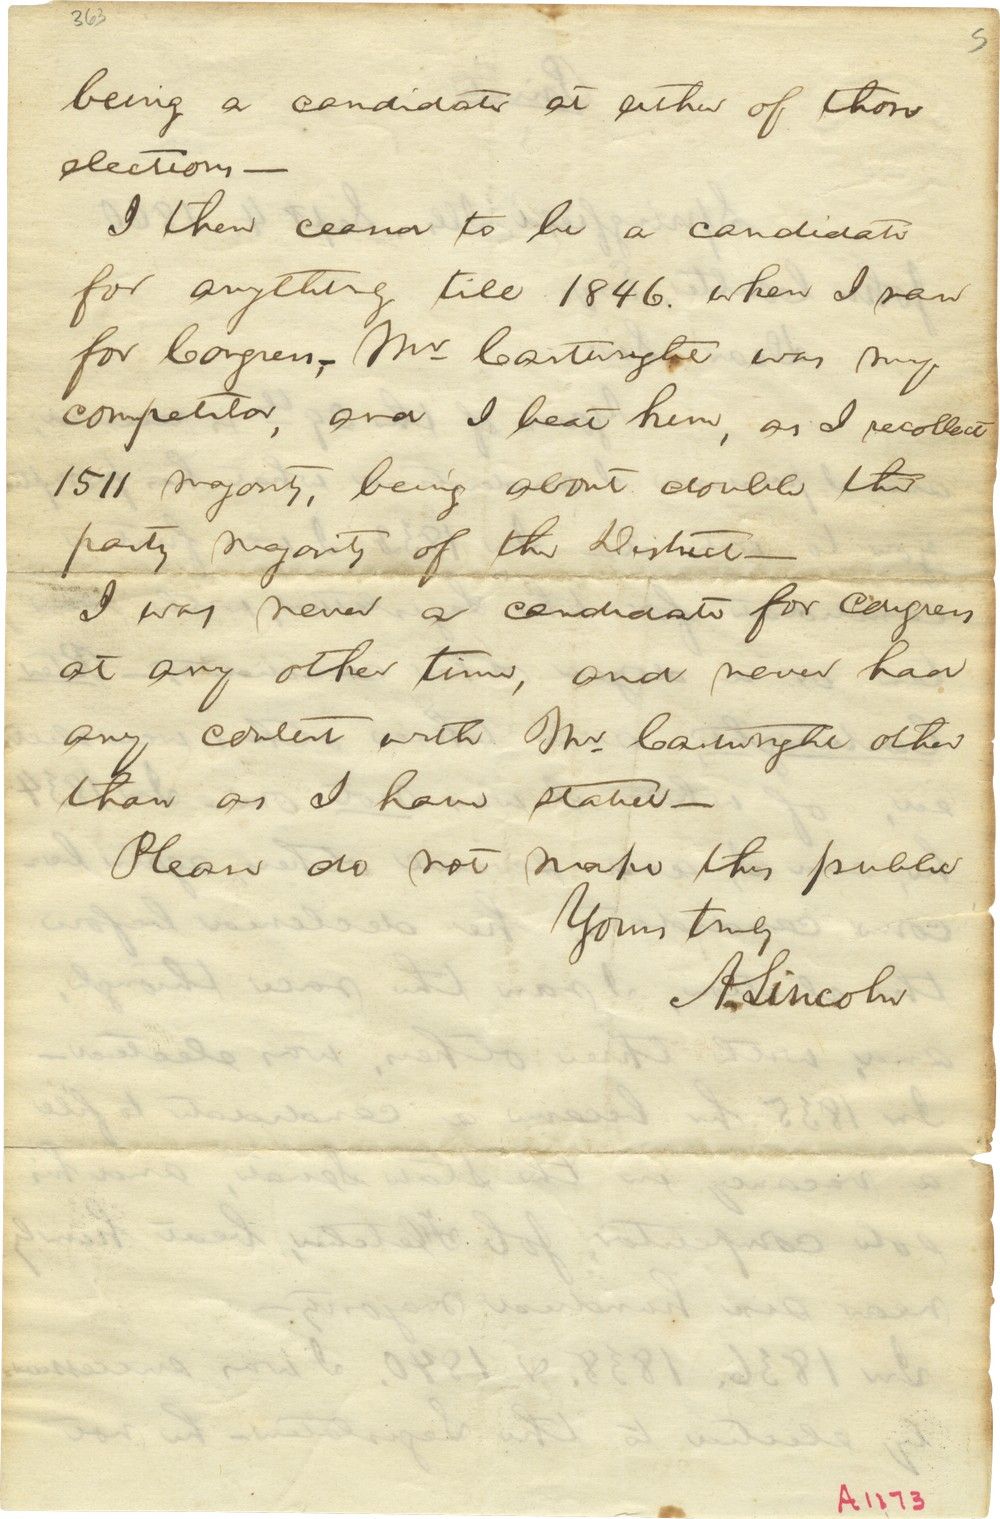 363
S
being a candidate at either of those
elections—
I then ceased to be a candidate
for anything till 1846. when I ran
for Congress, Mr Cartwright was my
competitor, and I beat him, as I recollect
1511 majority, being about double the
party majority of the District—
I was never a candidate for Congress
at any other time, and never had
any contest with Mr. Cartwright other
than as I have stated—
Please do not make this public
Yours truly
A. Lincoln
A1173